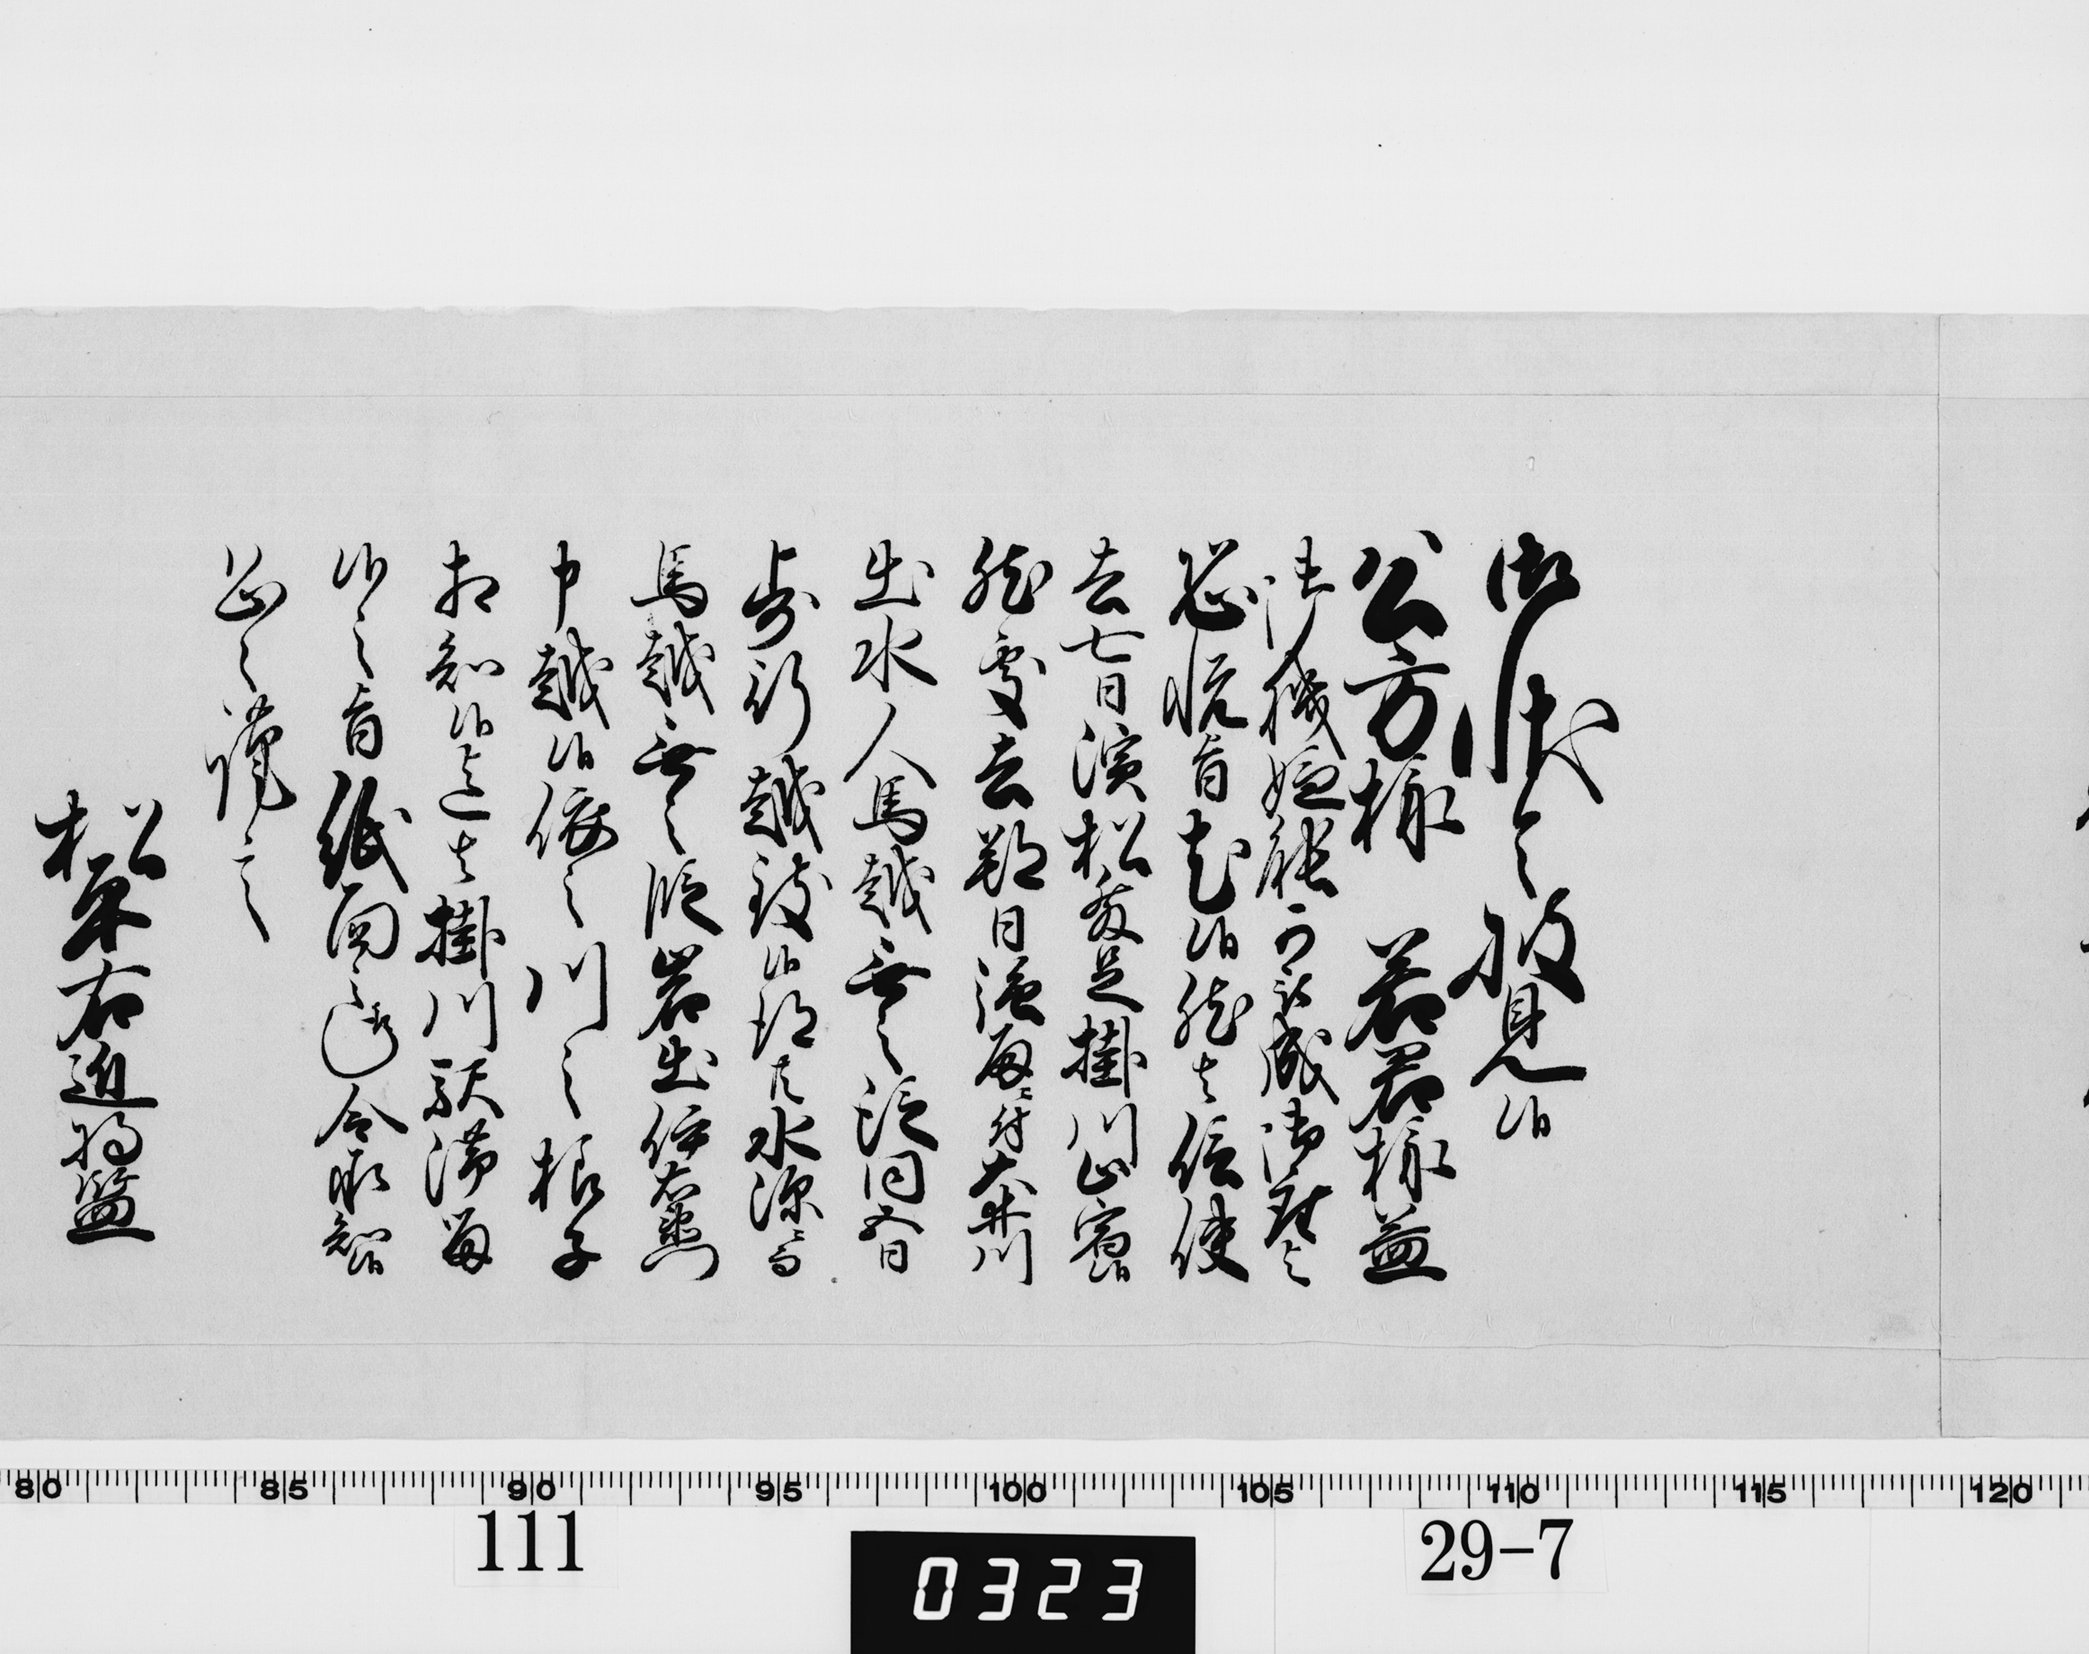 御状令披見候
公方様 若君様益
御機嫌能可被成御座と
恐悦旨尤候然者信使
去七日濱松発足掛川止宿候
然處去朔日強雨ニ付大井川
出水人馬越無之段同五日
歩行越致候得共水深ニ而
馬越無之段岩出伊右衛門
申越候依之川之様子
相知候迄者掛川駅滞留
候之旨紙面之通令承知候
恐々謹言
松平右近将監
80 85 90 95 100 105 110 115 120
111
0323
29-7